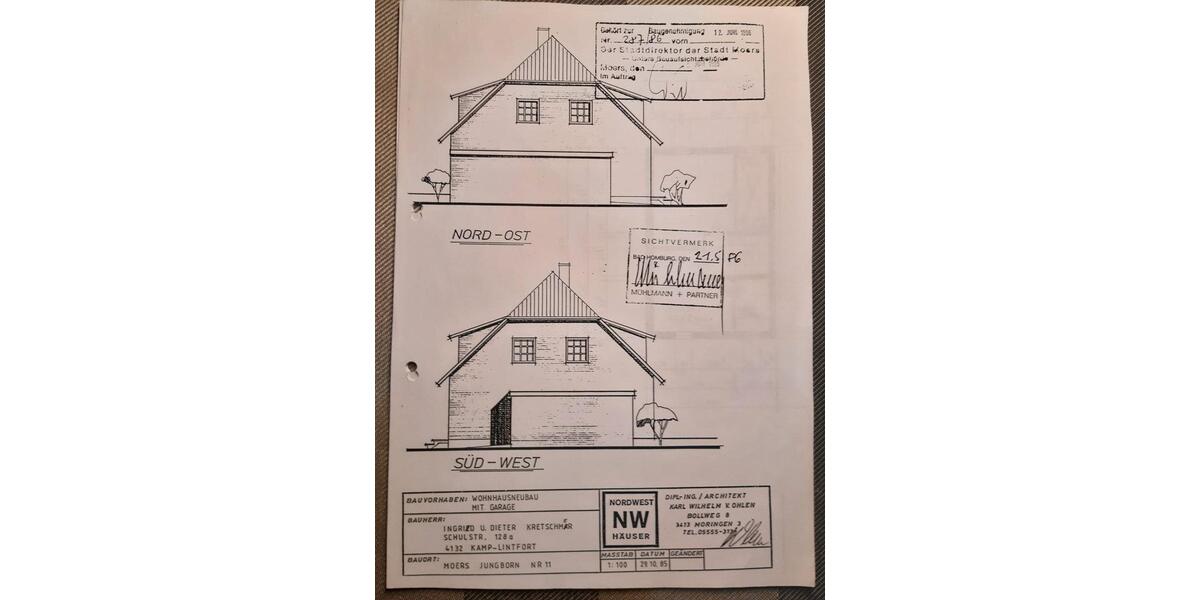 Gehört zur Baugenehmigung 12. JUNI 1986
Nr. 287/86 vom
Der Stadtdirektor der Stadt Moers
— Untere Bauaufsichtsbehörde —
Moers, den
Im Auftrag
NORD-OST
SICHTVERMERK
BAD HOMBURG, DEN 21.5 86
MÜHLMANN + PARTNER
SÜD-WEST
BAUVORHABEN: WOHNHAUSNEUBAU
MIT GARAGE
BAUHERR:
INGRID U. DIETER KRETSCHMER
SCHULSTR. 128a
4132 KAMP-LINTFORT
BAUORT: MOERS JUNGBORN NR 11
NORDWEST
NW
HÄUSER
DIPL-ING. / ARCHITEKT
KARL WILHELM V. OHLEN
BOLLWEG 8
3413 MORINGEN 3
TEL. 05555-
MASSTAB DATUM GEÄNDERT
1:100 29.10.85